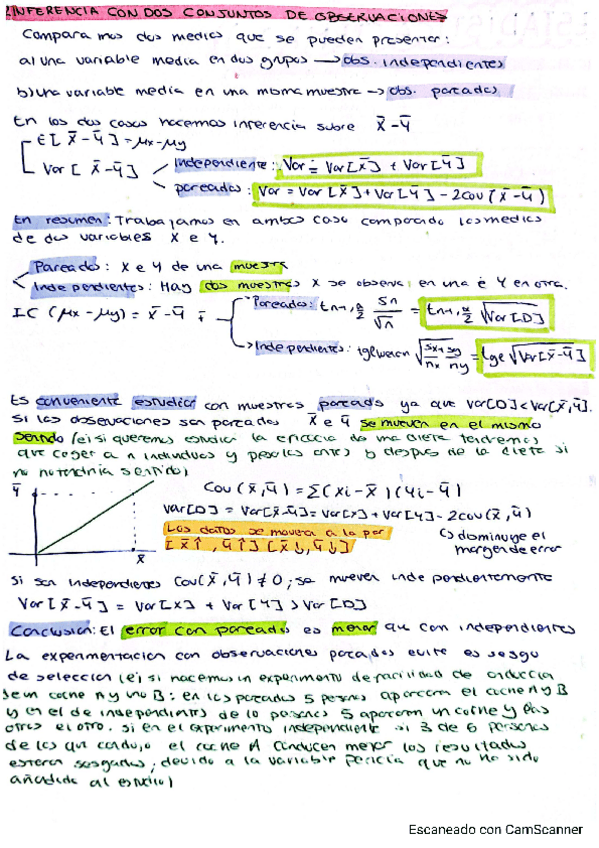 INFERENCIA CON DOS CONJUNTOS DE OBSERVACIONES
Comparamos dos medias que se pueden presentar:
a) Una variable media en dos grupos → obs. independientes
b) Una variable media en una misma muestra → obs. pareadas
En los dos casos hacemos inferencia sobre X̄-Ȳ
E[X̄-Ȳ] = μx-μy
Var[X̄-Ȳ]
Independiente: Var = Var[X̄] + Var[Ȳ]
pareados: Var = Var[X̄] + Var[Ȳ] - 2cov(X̄-Ȳ)
En resumen: Trabajamos en ambos caso comparado las medias
de dos variables X e Y.
Pareado: X e Y de una muestra
Independientes: Hay dos muestras X se observa en una e Y en otra.
IC (μx-μy) = X̄-Ȳ ∓
Pareados: tn-1, α/2 Sn/√n = tn-1, α/2 √Var[D]
Independientes: √Sx/nx + Sy/ny = tge √Var[X̄-Ȳ]
Es conveniente estudiar con muestras pareada ya que Var[D] < Var[X̄,Ȳ].
Si las observaciones son pareadas X̄ e Ȳ se mueven en el mismo
sentido (ej si queremos estudiar la eficacia de una dieta tendremos
que coger a n individuos y pesarlos antes y despues de la dieta si
no no tendria sentido)
Ȳ
X̄
Cov(X̄,Ȳ) = Σ(Xi-X̄)(Yi-Ȳ)
Var[D] = Var[X̄-Ȳ] = Var[X] + Var[Y] - 2cov(X̄,Ȳ)
Los datos se mueven a la par
[X̄↑, Ȳ↑] [X̄↓, Ȳ↓]
↳ disminuye el
margen de error
Si son independientes Cov(X̄,Ȳ) ≠ 0; se mueven independientemente
Var[X̄-Ȳ] = Var[X] + Var[Y] > Var[D]
Conclusion: El error con pareados es menor que con independientes
La experimentacion con observaciones pareadas evita es sesgo
de selección (ej si hacemos un experimento de facilidad de conducción
de un coche A y uno B: en los pareados 5 personas aparcan el coche A y B
y en el de independientes de 10 personas 5 aparcan un coche y las
otras el otro. si en el experimento independiente si 3 de 6 personas
de los que condujo el coche A conducen mejor los resultados
estaran sesgados, debido a la variable pericia que no ha sido
añadida al estudio)
Escaneado con CamScanner